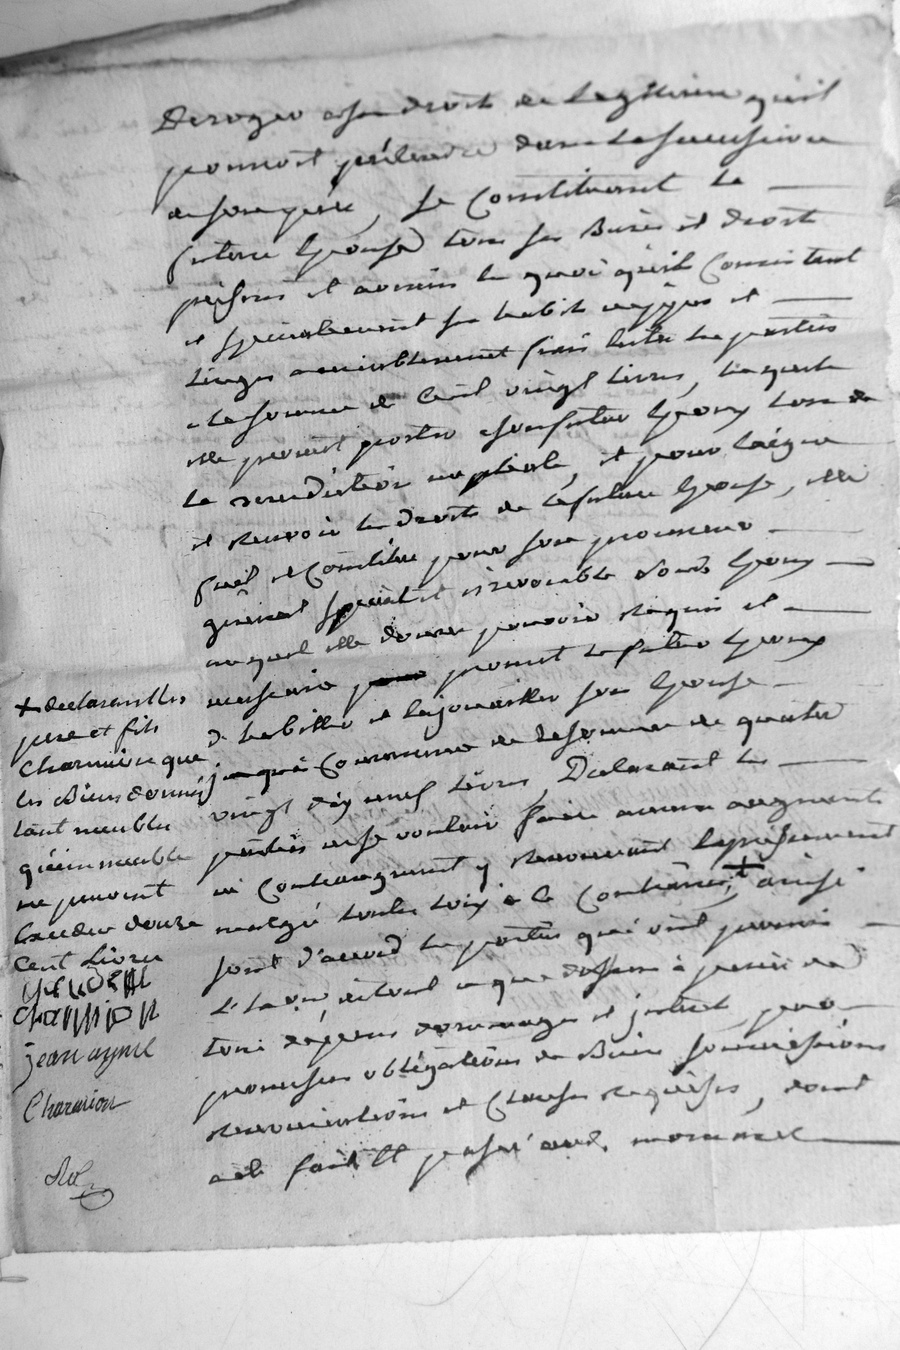 Deroger a son droit de Legitime quil
pourroit pretendre dans La succession
de son pere, se Constituant La
future Epouse tous ses Biens et droits
presens et avenir en quoi quils Consistent
et specialement ses habits nippes et
Linges amiablement entre Les parties
a La somme de Cent vingt Livres, Laquelle
elle promet porter a son futur Epoux Lors de
La benediction nuptiale, et pour exiger
et recevoir Les Droits de La future Epouse, elle
fait et Constitue pour son procureur
general special et irrevocable Led. Epoux
auquel elle donne pouvoir requis et
necessaire promet Le futur Epoux
d'habiller et enjoailler son Epouse
jusqu'a Concurrence de La somme de quatre
vingt dix neuf Livres, Declarant Les
parties ne se vouloir faire aucun augment
ni Contraugment y renonçant Expressement
malgré toutes Loix a ce Contraires, + ainsi
sont d'accord Les parties qui ont promis
et tout ce que dessus à peine de
tous depens dommages et interets, pour
promesses obligations de Biens soumissions
renonciations et Clauses requises, dont
acte fait et passé aud.
+ declarant les
pere et fils
Charmion que
les Biens donnés
tant meubles
qu'immeubles
ne peuvent
Exceder douze
Cent Livres
Charmion
jean aymé
Charmion